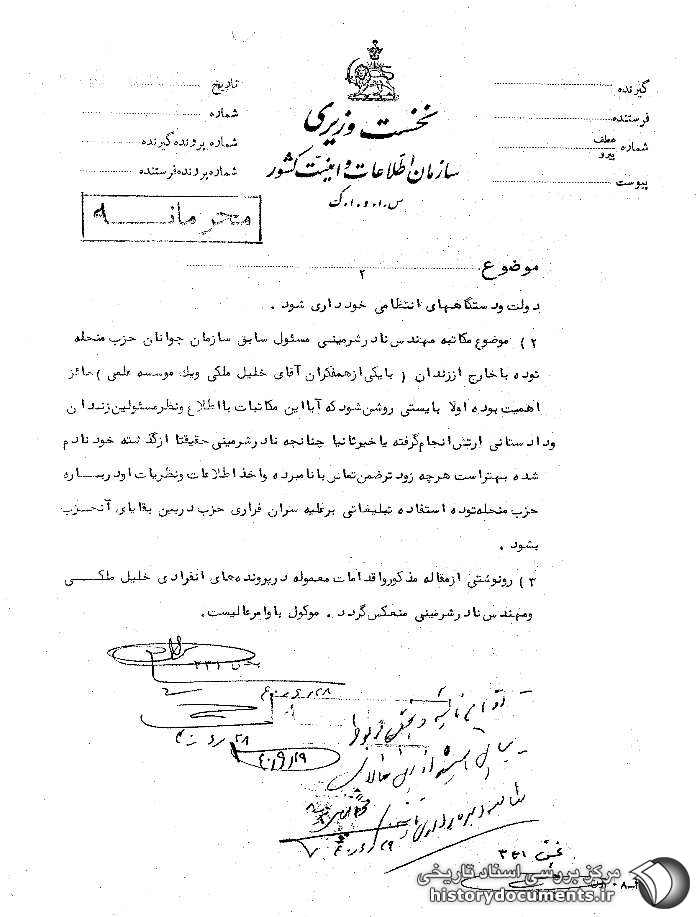 گیرنده
فرستنده
شماره عطف پیرو
پیوست
نخست وزیری
سازمان اطلاعات و امنیت کشور
س.ا.و.ا.ک
تاریخ
شماره
شماره پرونده گیرنده
شماره پرونده فرستنده
محرمانه
موضوع ۲
دولت و دستگاههای انتظامی خود داری شود .
۲ ) موضوع مکاتبه مهندس نادر شرمینی مسئول سابق سازمان جوانان حزب منحله
توده با خارج از زندان ( با یکی از همفکران آقای خلیل ملکی و یک موسسه علمی ) حائز
اهمیت بوده اولا بایستی روشن شود که آیا این مکاتبات با اطلاع و نظر مسئولین زندان
و دادستانی ارتش انجام گرفته یا خیر ثانیا چنانچه نادر شرمینی حقیقتا از گذشته خود نادم
شده بهتر است هرچه زودتر ضمن تماس با نامبرده و اخذ اطلاعات و نظریات او درباره
حزب منحله توده استفاده تبلیغاتی بر علیه سران فراری حزب در بین بقایای آنحزب
بشود .
۳ ) رونوشتی از مقاله مذکور و اقدامات معموله در پرونده های انفرادی خلیل ملکی
و مهندس نادر شرمینی منعکس گردد . موکول باوامر عالیست .
بخش ۳۳۱
۲۸ر۶ر۴۰
۲۸ر۶ر۴۰
۲۹ر۶ر۴۰
بخش ۳۴۱
مرکز بررسی اسناد تاریخی
historydocuments.ir